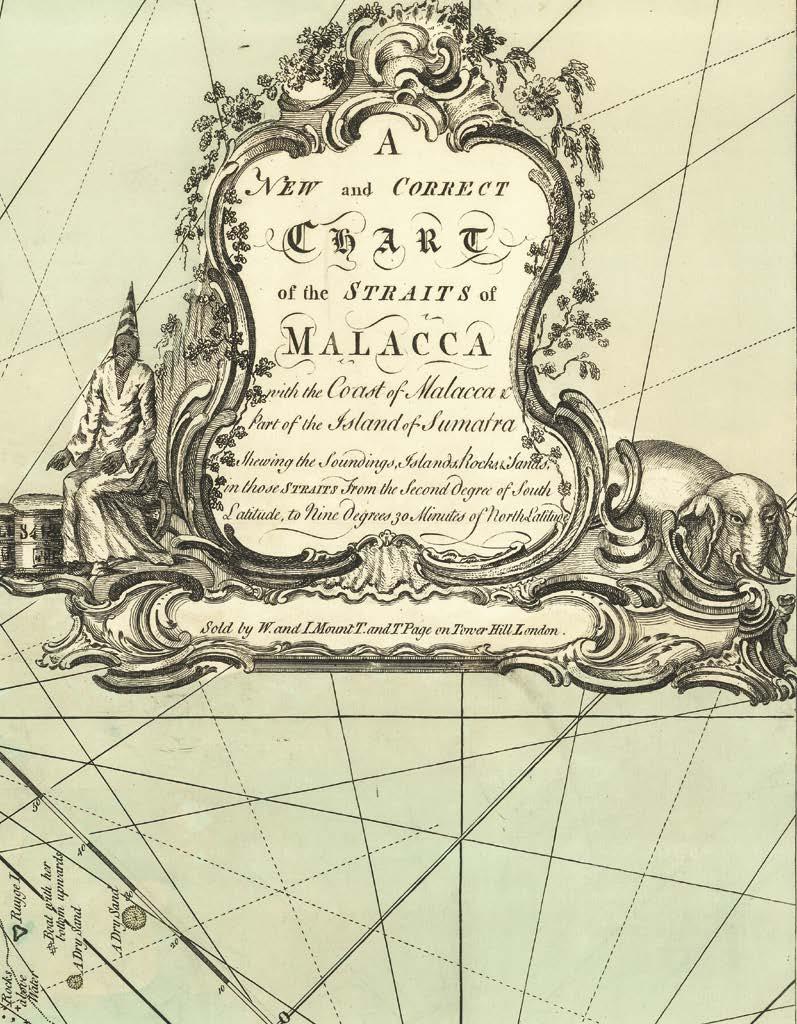 A
NEW and CORRECT
CHART
of the STRAITS of
MALACCA
with the Coast of Malacca &
Part of the Island of Sumatra
Shewing the Soundings, Islands, Rocks & Sands,
in those STRAITS From the Second Degree of South
Latitude, to Nine Degrees 30 Minutes of North Latitude
Sold by W. and I. Mount T. and T. Page on Tower Hill London.
50
40
20
10
0
Range I.
Boat with her
bottom upwards
A Dry Sand
A Dry Sand
Rocks
above
Water